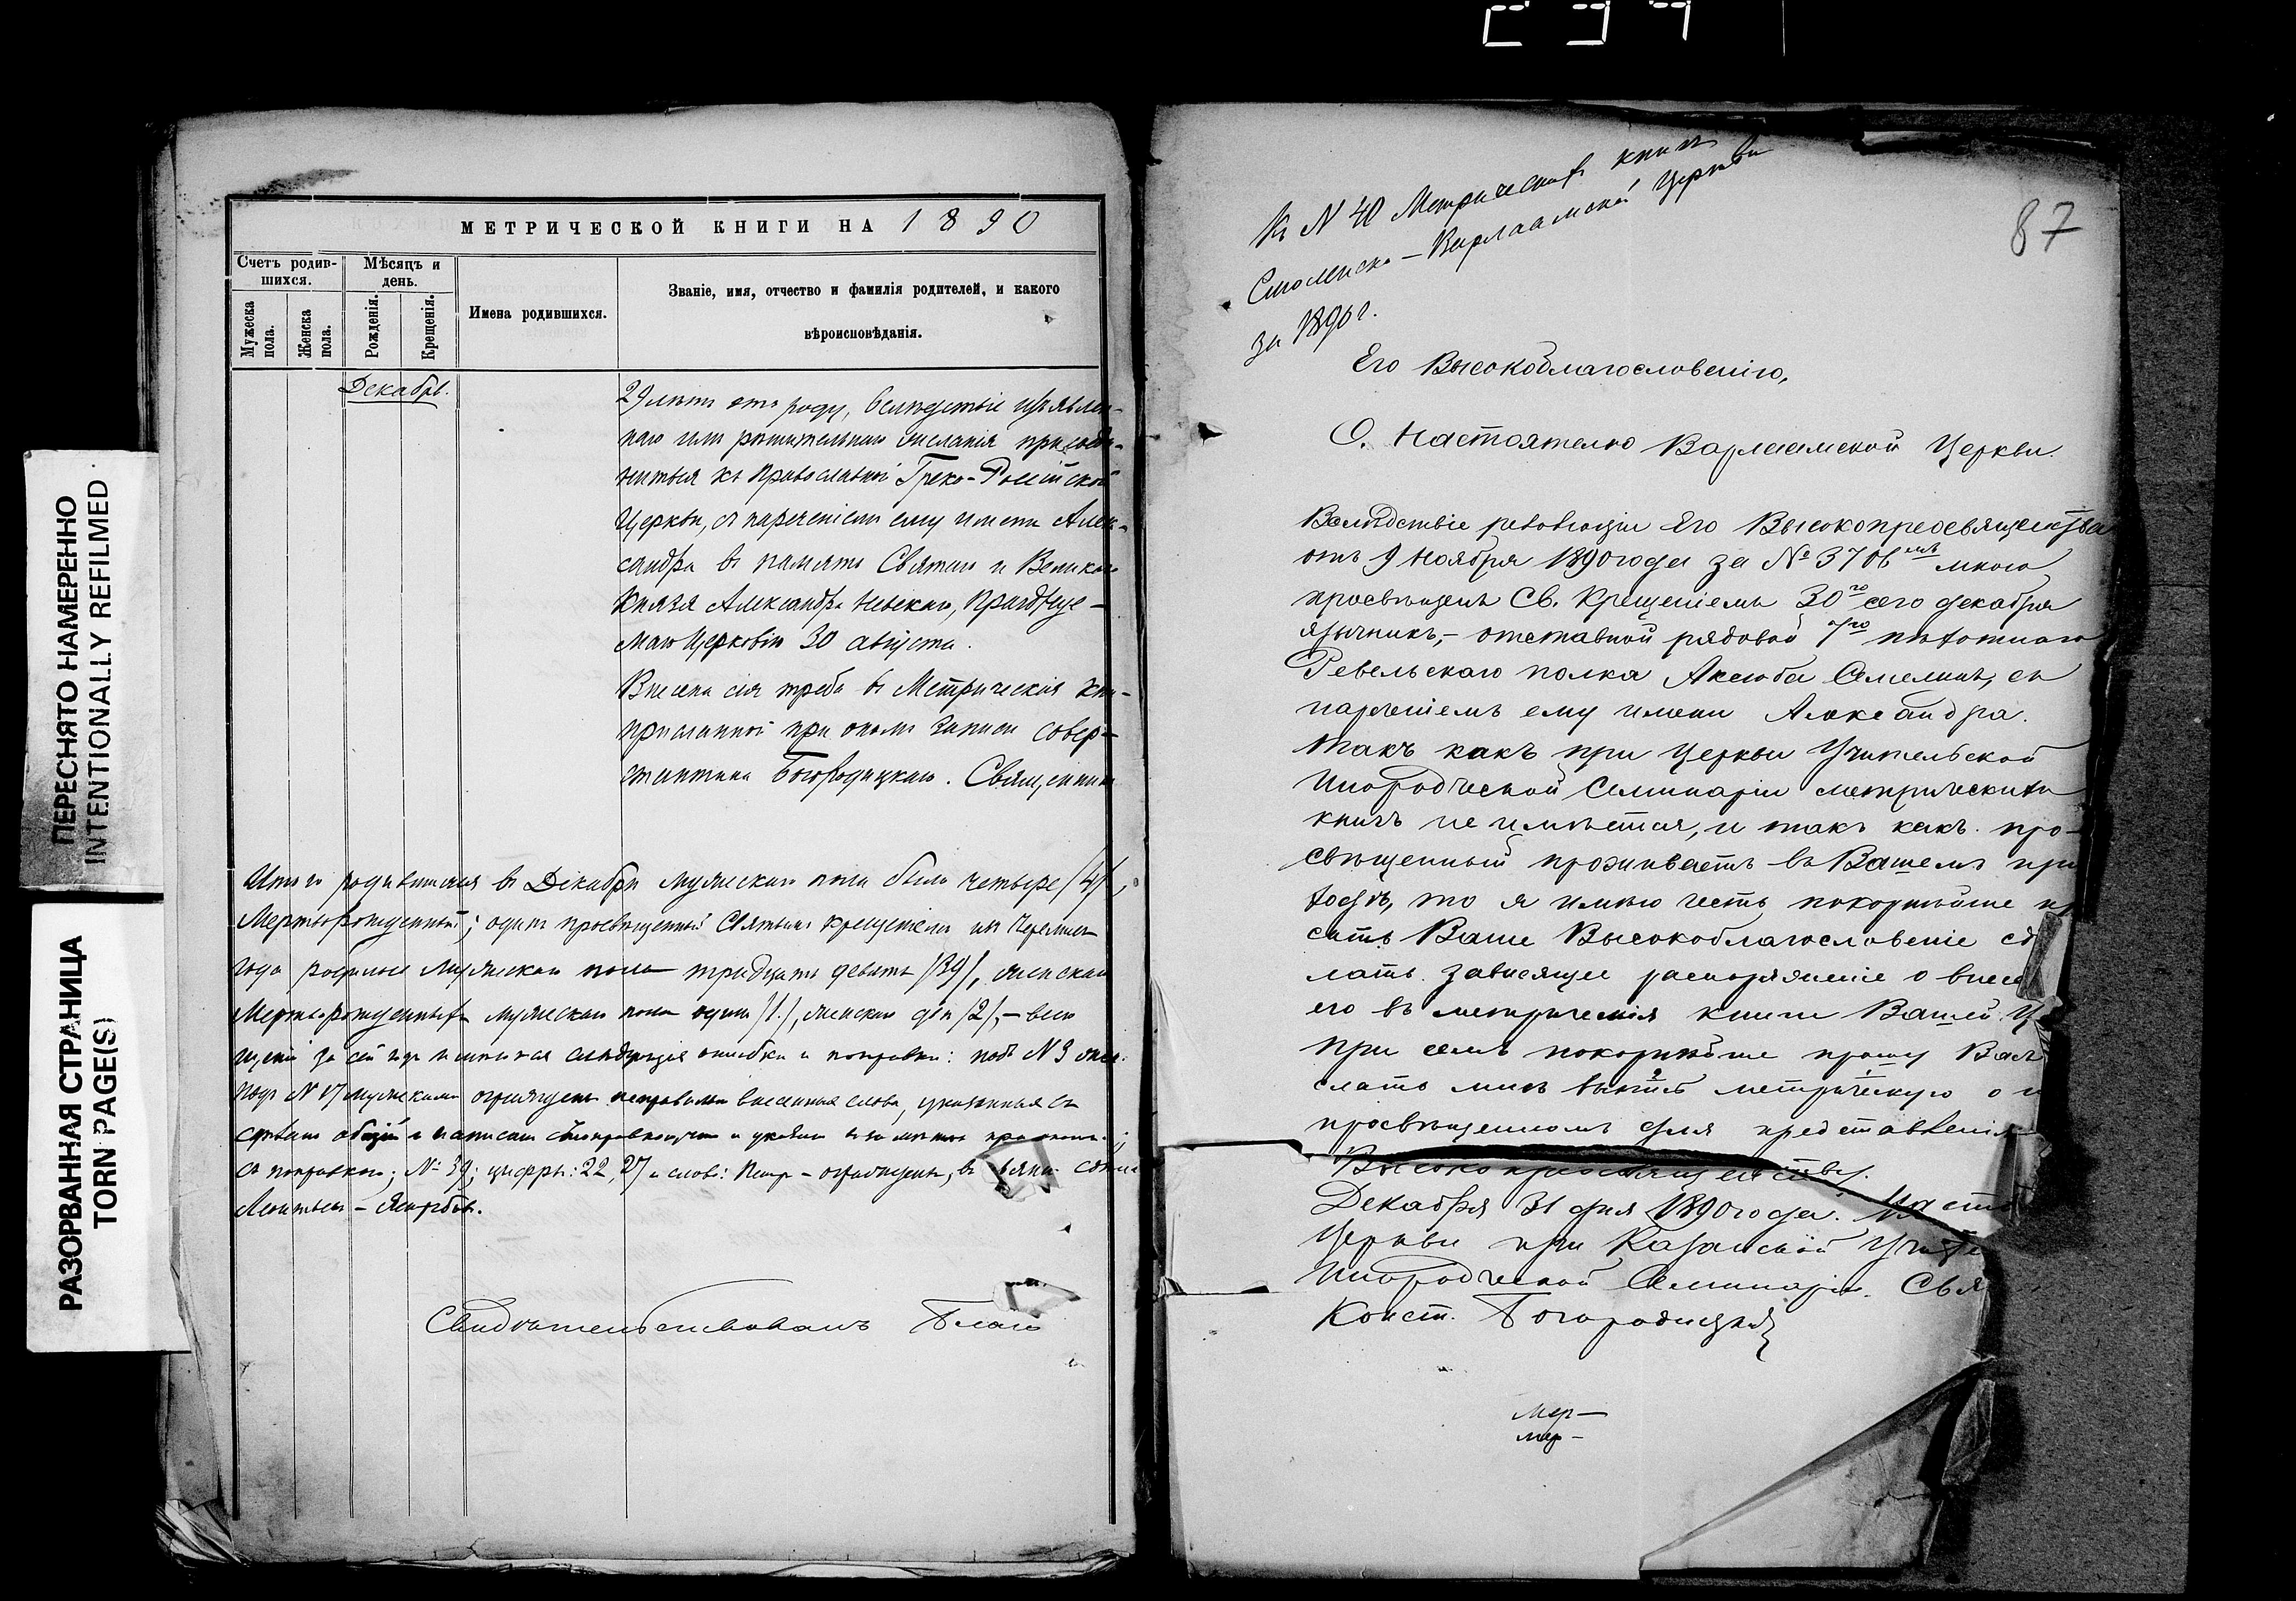 ПЕРЕСНЯТО НАМЕРЕННО
INTENTIONALLY REFILMED
РАЗОРВАННАЯ СТРАНИЦА
TORN PAGE(S)
МЕТРИЧЕСКОЙ КНИГИ НА 1890
Счетъ родив-
шихся.
Мѣсяцъ и
день.
Мужеска
пола.
Женска
пола.
Рожденія.
Крещенія.
Имена родившихся.
Званіе, имя, отчество и фамилія родителей, и какого
вѣроисповѣданія.
Декабрь.
29 лѣтъ отъ роду, вслѣдствіе изъявлен-
наго имъ рѣшительнаго желанія присоеди-
ниться къ Православной Греко-Россійской
Церкви, съ нареченіемъ ему имени Алек-
сандра въ память Святаго и Великаго
Князя Александра Невскаго, празднуе-
маго Церковію 30 августа.
Внесена сія треба въ Метрическія кни-
присланной при ономъ записи совер-
стантина Богородицкаго. Священник
Итого родившихся въ Декабрѣ мужескаго пола было четыре /4/,
Мертворожденный; одинъ просвѣщенный Святымъ крещеніемъ изъ Черемисъ
года родилось мужескаго пола тридцать девять /39/, женскаго
Мертворожденныхъ мужескаго пола одинъ /1./, женскаго два /2/, – всего
за сей годъ имѣются слѣдующія ошибки и поправки: подъ N 3
подъ N 17 мужескаго неправильно внесенныя слова, указанныя въ
съ поправкою; № 39; цифры: 22, 27 и слов:
Свидѣтельствовалъ Благо
87
Къ N 40 Метрическихъ книгъ
Смоленско-Варлаамской Церкви
за 1890 г.
Его Высокоблагословенію,
О. Настоятелю Варлаамской Церкви.
Вслѣдствіе резолюціи Его Высокопреосвященства
отъ 9 Ноября 1890 года за № 3706 мною
просвѣщенъ Св. Крещеніемъ 30го сего декабря
язычникъ, – отставной рядовой 7го пѣхотнаго
Ревельскаго полка Акслюба Семелинъ, съ
нареченіемъ ему имени Александра.
Такъ какъ при Церкви Учительской
Инородческой Семинаріи метрическихъ
книгъ не имѣется, и такъ какъ про-
свѣщенный проживаетъ въ Вашемъ при
ходѣ, то я имѣю честь покорнѣйше пр
сить Ваше Высокоблагословеніе сдѣ
лать зависящее распоряженіе о внесе
его въ метрическія книги Вашей Ц
При семъ покорнѣйше прошу Васъ
слать мнѣ метрическую о н
просвѣщенномъ для представленія
Высокопреосвященству.
Декабря 31 дня 1890 года. Насто
Церкви при Казанской Учите
Инородческой Семинаріи. Свя
Конст. Богородицкій
мер –
мер –